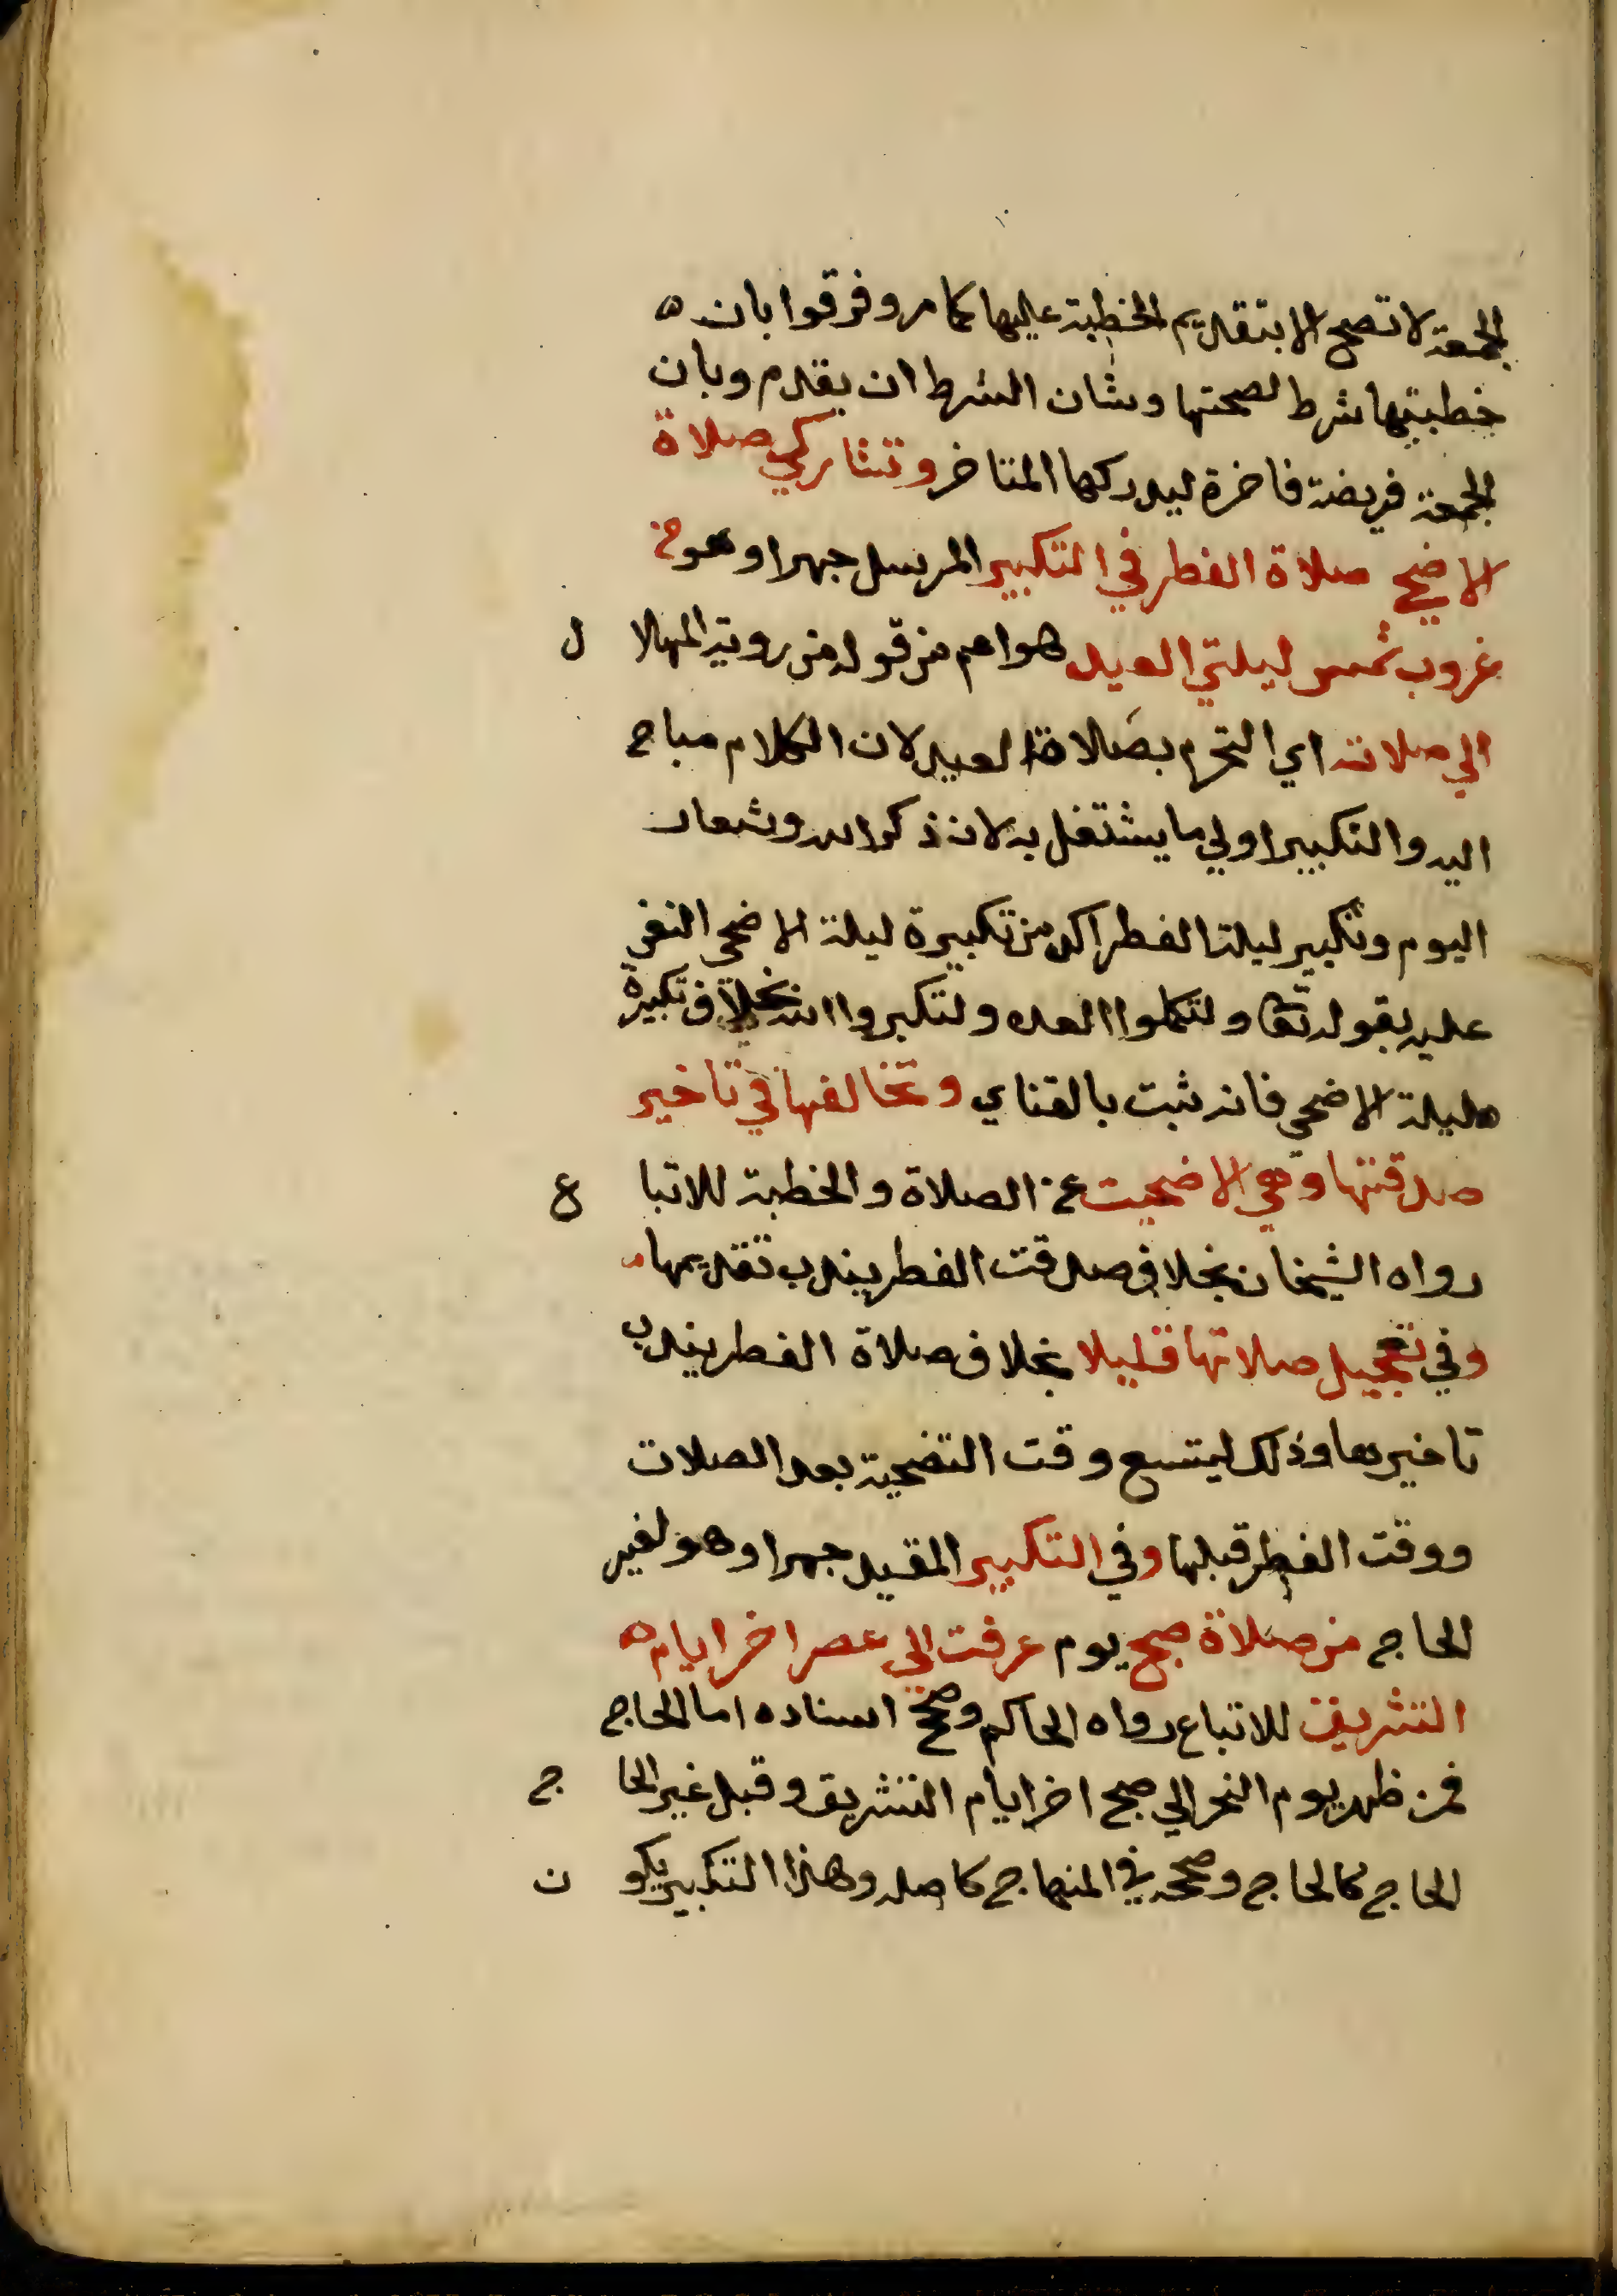 الجمعة لا تصح الا بتقديم الخطبة عليها كما مر وفرقوا بان ه
خطبتيها شرط لصحتها وشان الشرط ان يقدم وبان
الجمعة فريضة فاخرة ليدركها المتاخر وتشاركي صلاة
الاضحي صلاة الفطر في التكبير المرسل جهرا وهو من
غروب شمس ليلتي العيد هو اعم من قوله من روية الهلا ل
الي صلاته اي التحرم بصلاة العيد لان الكلام مباح
اليه والتكبير اولي ما يشتغل به لانه ذكر الله وشعار
اليوم وتكبير ليلة الفطر اكد من تكبيرة ليلة الاضحي النص
عليه بقوله تعا ولتكملوا العده ولتكبروا الله بخلاف تكبيرة
ليلة الاضحي فانه ثبت بالقناي وتخالفها في تاخير
صدقتها وهي الاضحيت عن الصلاة والخطبة للاتبا ع
رواه الشيخان بخلاف صدقت الفطر يندب تقديمها
وفي تعجيل صلاتها قليلا بخلاف صلاة الفطر يندب
تاخيرها وذلك ليتسع وقت التضحية بعد الصلات
ووقت الفطر قبلها وفي التكبير المقيد جهرا وهو لغير
الحاج من صلاة صبح يوم عرفت الي عصر اخر ايام ه
التشريق للاتباع رواه الحاكم وصحح اسناده اما الحاج
فمن ظهر يوم النحر الي صبح اخر ايام التشريق وقبل غير الحا ج
الحاج كالحاج وصححه في المنهاج كاصله وهذا التكبير يكو ن